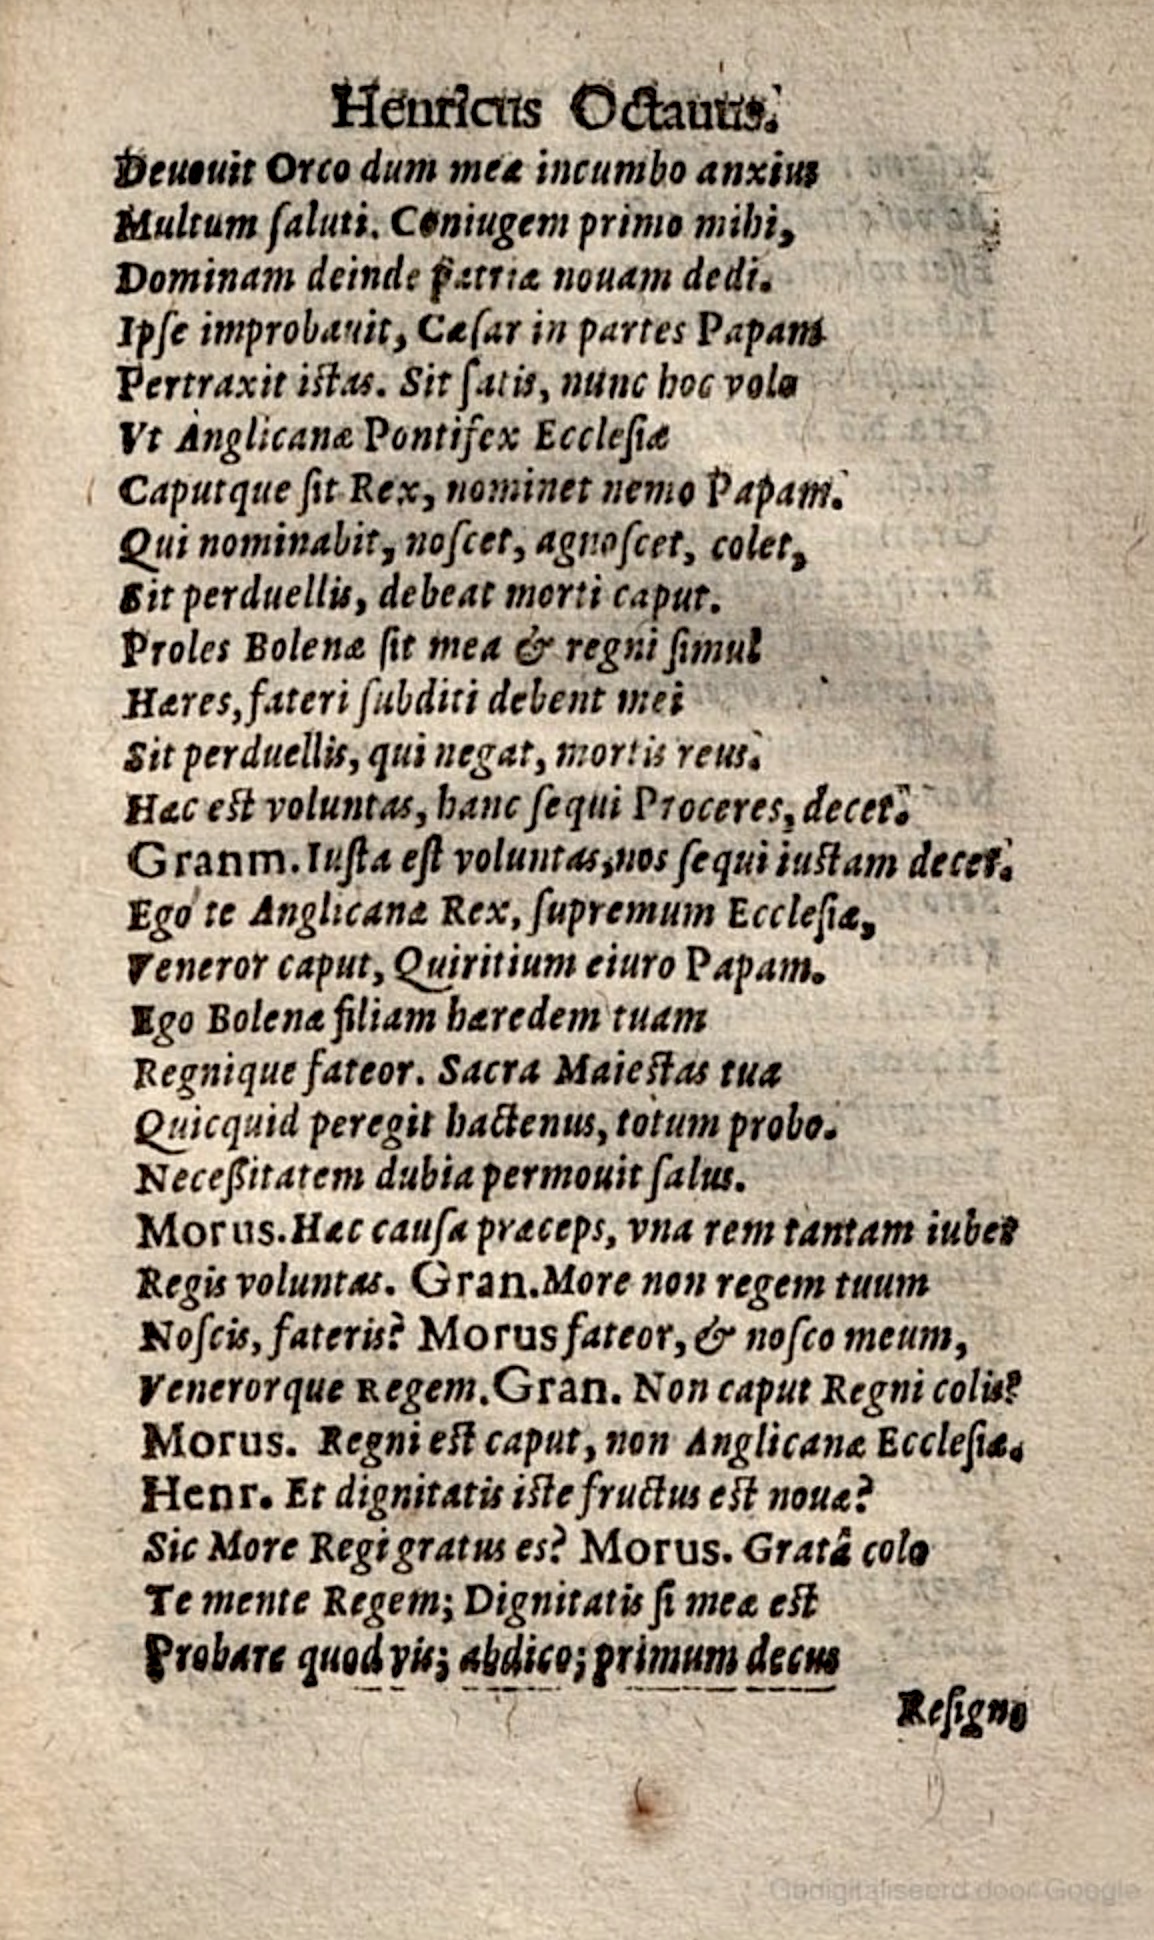 Henricus Octauus.
Deuouit Orco dum meæ incumbo anxius
Multum ſaluti. Coniugem primo mihi,
Dominam deinde patriæ nouam dedi.
Ipſe improbauit, Cæſar in partes Papam
Pertraxit iſtas. Sit ſatis, nunc hoc volo
Vt Anglicanæ Pontifex Eccleſiæ
Caputque ſit Rex, nominet nemo Papam.
Qui nominabit, noſcet, agnoſcet, colet,
Sit perduellis, debeat morti caput.
Proles Bolenæ ſit mea & regni ſimul
Hæres, fateri ſubditi debent mei
Sit perduellis, qui negat, mortis reus.
Hæc eſt voluntas, hanc ſequi Proceres, decet.
Granm. Iuſta eſt voluntas, nos ſequi iuſtam decet.
Ego te Anglicanæ Rex, ſupremum Eccleſiæ,
Veneror caput, Quiritium eiuro Papam.
Ego Bolenæ filiam hæredem tuam
Regnique fateor. Sacra Maieſtas tua
Quicquid peregit hactenus, totum probo.
Neceßitatem dubia permouit ſalus.
Morus. Hæc cauſa præceps, vna rem tantam iubet
Regis voluntas. Gran. More non regem tuum
Noſcis, fateris? Morus fateor, & noſco meum,
Venerorque Regem. Gran. Non caput Regni colis?
Morus. Regni eſt caput, non Anglicanæ Eccleſiæ.
Henr. Et dignitatis iſte fructus eſt nouæ?
Sic More Regi gratus es? Morus. Gratâ colo
Te mente Regem; Dignitatis ſi meæ eſt
Probare quod vis; abdico; primum decus
Reſigno
Gedigitaliseerd door Google